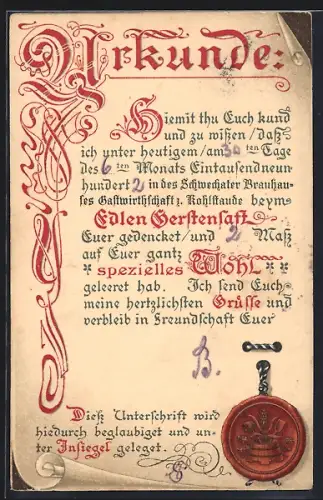 Urkunde:
Hiemit thu Euch kund
und zu wißen/daß
ich unter heutigem/am 30 ten Tage
des 6 ten Monats Eintausendneun
hundert 2 in des Schwechater Brauhau-
ses Gastwirthschaft z. Kohlstaude beym
Edlen Gerstensaft
Euer gedencket/und 2 Maß
auf Euer gantz
* spezielles Wohl * *
geleeret hab. Ich send Euch
meine hertzlichsten Grüsse und
verbleib in Freundschaft Euer
B.
Dieß Unterschrift wird
hiedurch beglaubiget und un-
ter Insiegel geleget.